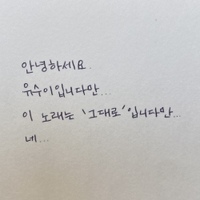 안녕하세요.
유수이입니다만...
이 노래는 '그대로'입니다만...
네...